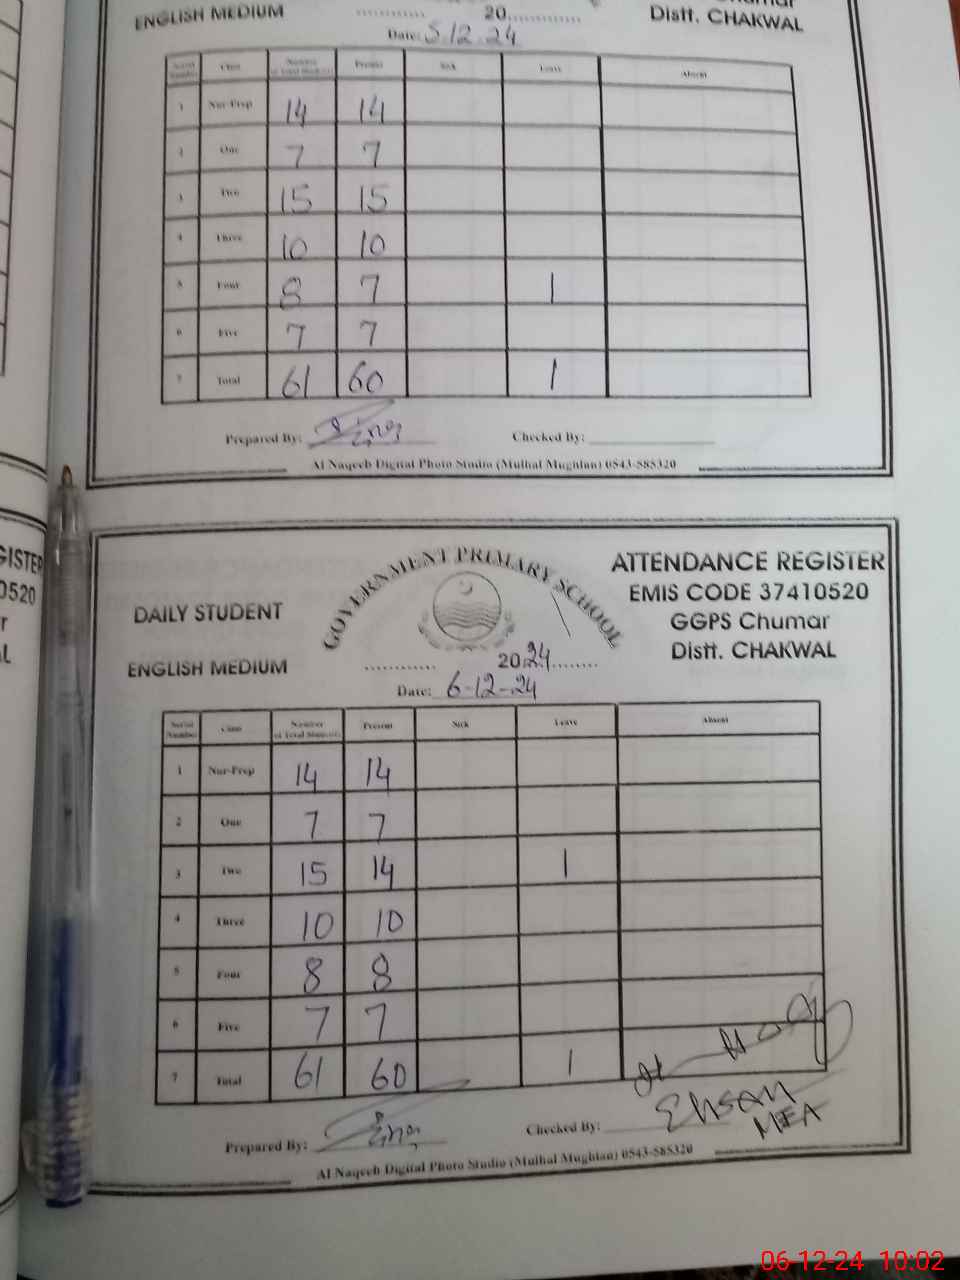 ENGLISH MEDIUM ............ 20............. Distt. CHAKWAL
Date: 5.12.24
Serial Number Class Number of Total Students Present Sick Leave Absent
1 Nur-Prep 14 14
2 One 7 7
3 Two 15 15
4 Three 10 10
5 Four 8 7 1
6 Five 7 7
7 Total 61 60 1
Prepared By: Checked By:
Al Naqeeb Digital Photo Studio (Mulhal Mughlan) 0543-585320
GISTER
0520
GOVERNMENT PRIMARY SCHOOL
ATTENDANCE REGISTER
EMIS CODE 37410520
DAILY STUDENT GGPS Chumar
ENGLISH MEDIUM ............ 2024........ Distt. CHAKWAL
Date: 6-12-24
Serial Number Class Number of Total Students Present Sick Leave Absent
1 Nur-Prep 14 14
2 One 7 7
3 Two 15 14 1
4 Three 10 10
5 Four 8 8
6 Five 7 7
7 Total 61 60 1
Prepared By: Checked By: Ehsan
MEA
Al Naqeeb Digital Photo Studio (Mulhal Mughlan) 0543-585320
06-12-24 10:02